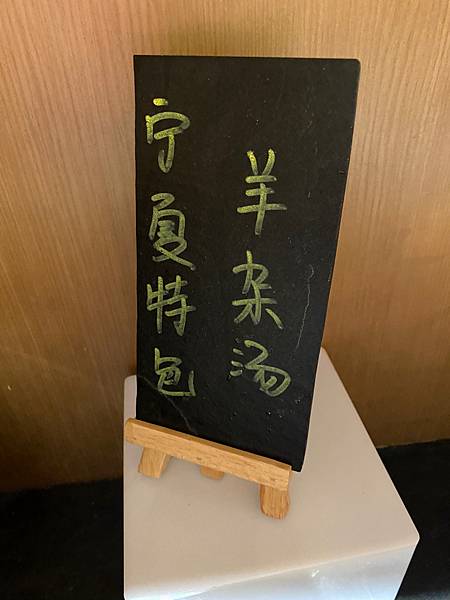 宁夏特色
羊杂汤